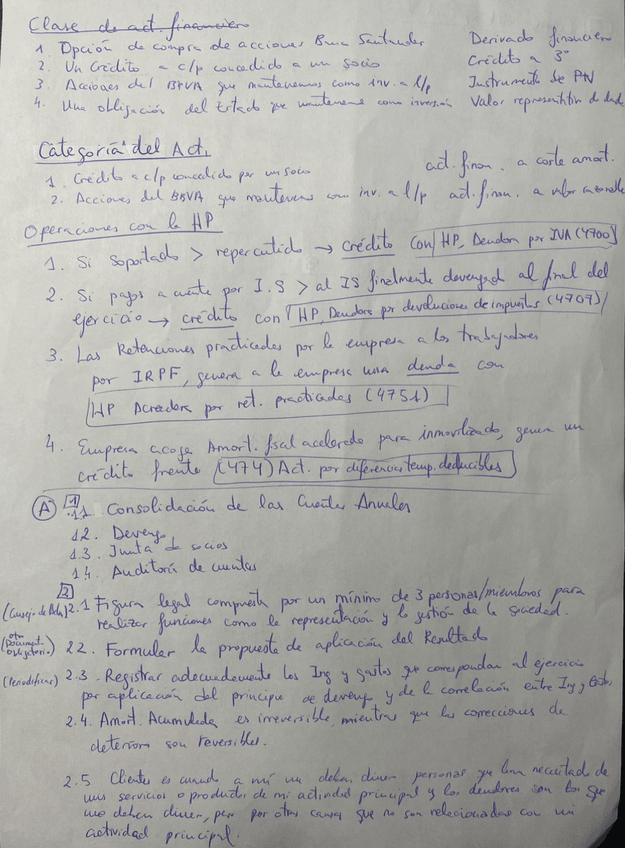 Clase de act. financiero
1 Opción de compra de acciones Bnco Santander Derivado financiero
2. Un Crédito a c/p concedido a un socio Crédito a 3º
3 Acciones del BBVA que mantenemos como inv. a l/p Instrumento de PN
4. Una obligación del Estado que mantenemos como inversión Valor representativo d deuda
Categoría del Act.
1. Crédito a c/p concedido por un socio act. finan. a coste amort.
2. Acciones del BBVA que mantenemos com inv. a l/p act. finan. a valor razonable
Operaciones con la HP
1. Si Soportado > repercutido → crédito con HP, Deudora por IVA (4700)
2. Si pagos a cuenta por I.S > al IS finalmente devengado al final del
ejercicio → crédito con HP, Deudora por devoluciones de impuestos (4709)
3. Las Retenciones practicadas por la empresa a los trabajadores
por IRPF, genera a la empresa una deuda con
HP Acreedora por ret. practicadas (4751)
4. Empresa acoge Amort. fiscal acelerada para inmovilizado, genera un
crédito frente (474) Act. por diferencias temp. deducibles
A 1 1.1 Consolidación de las Cuentas Anuales
1.2. Devengo
1.3. Junta de socios
1.4. Auditoría de cuentas
2
(Consejo de Adm) 2.1 Figura legal compuesta por un mínimo de 3 personas/miembros para
realizar funciones como la representación y la gestión de la sociedad.
(otro Document. obligatorio.) 2.2. Formular la propuesta de aplicación del Resultado
(Periodificar) 2.3 - Registrar adecuadamente los Ing y gastos que correspondan al ejercicio
por aplicación del principio de devengo y de la correlación entre Ing y Gastos
2.4. Amort. Acumulada es irreversible, mientras que las correcciones de
deterioro son reversibles.
2.5 Clientes es cuando a mí me deben dinero personas que han necesitado de
mis servicios o productos de mi actividad principal y los deudores son los que
me deben dinero, pero por otras causas que no son relacionadas con mi
actividad principal.